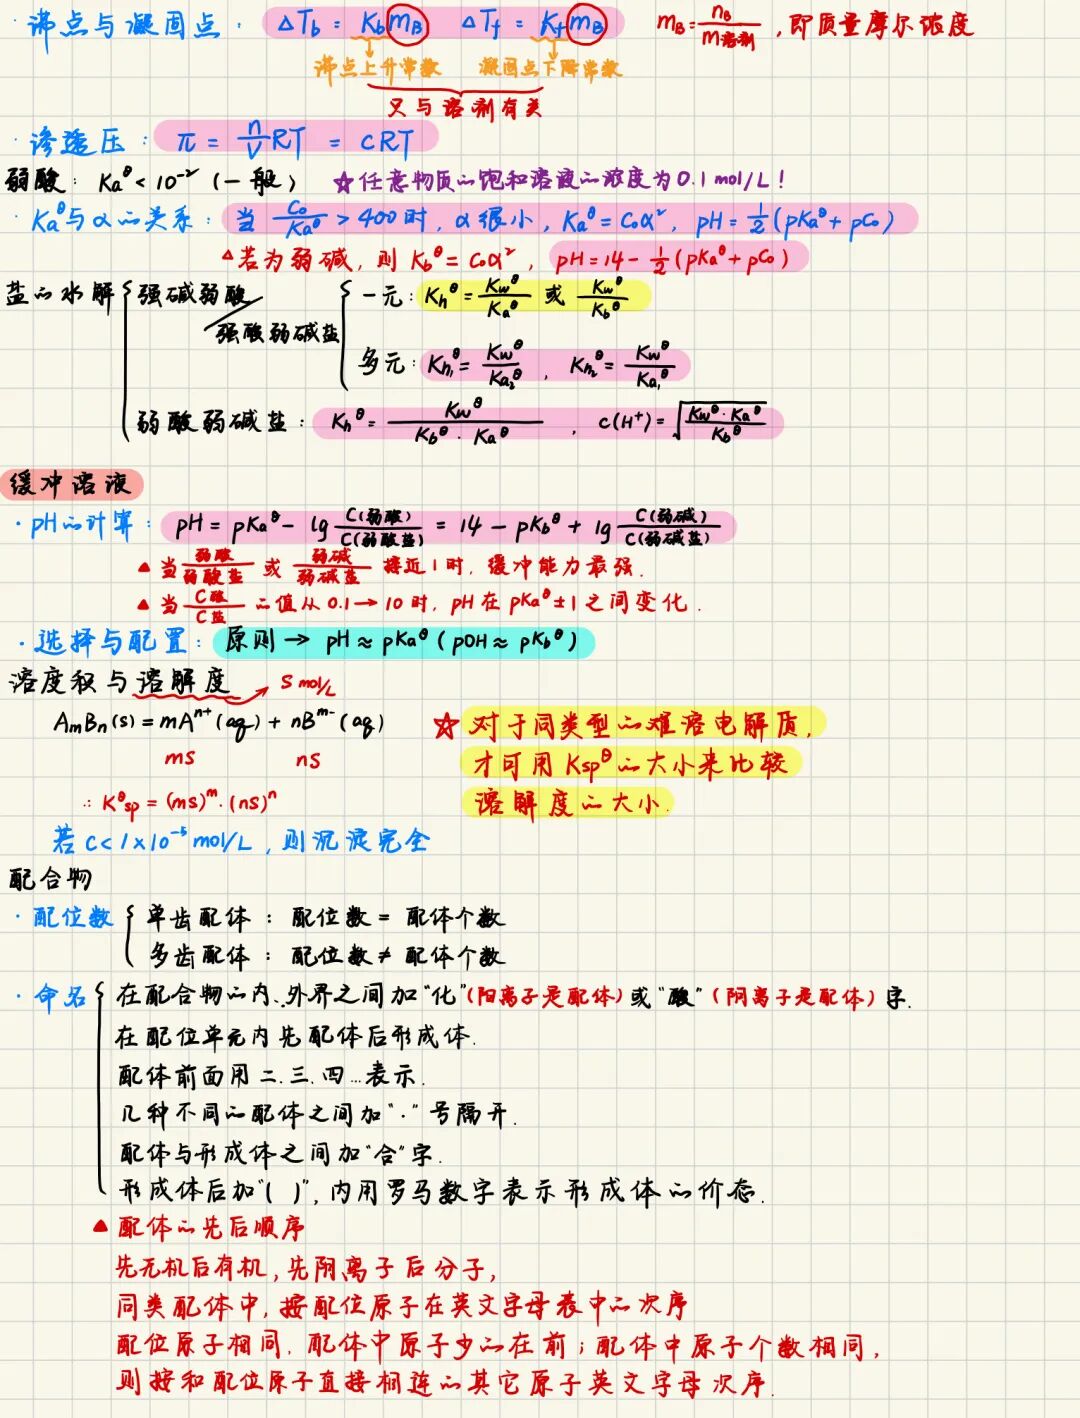 · 沸点与凝固点: ΔTb = Kb mB ΔTf = Kf mB mB = nB/m溶剂, 即质量摩尔浓度
沸点上升常数 凝固点下降常数
又与溶剂有关
· 渗透压: π = n/V RT = cRT
弱酸: Ka^θ < 10^-2 (一般) ☆任意物质的饱和溶液的浓度为0.1 mol/L!
· Ka^θ与α的关系: 当 C0/Ka^θ > 400时, α很小, Ka^θ = C0α², pH = 1/2(pKa^θ + pC0)
△若为弱碱, 则 Kb^θ = C0α², pH = 14 - 1/2(pKa^θ + pC0)
盐的水解 { 强碱弱酸/强酸弱碱盐 { 一元: Kh^θ = Kw^θ/Ka^θ 或 Kw^θ/Kb^θ
多元: Kh1^θ = Kw^θ/Ka2^θ, Kh2^θ = Kw^θ/Ka1^θ
弱酸弱碱盐: Kh^θ = Kw^θ/(Kb^θ·Ka^θ), c(H⁺) = √(Kw^θ·Ka^θ/Kb^θ)
缓冲溶液
· pH的计算: pH = pKa^θ - lg C(弱酸)/C(弱酸盐) = 14 - pKb^θ + lg C(弱碱)/C(弱碱盐)
▲当 弱酸/弱酸盐 或 弱碱/弱碱盐 接近1时, 缓冲能力最强.
▲当 C酸/C盐 的值从0.1→10时, pH在pKa^θ±1之间变化.
· 选择与配置: 原则→ pH≈pKa^θ (pOH≈pKb^θ)
溶度积与溶解度 → S mol/L
AmBn(s) = mA^n+(aq) + nB^m-(aq) ☆对于同类型的难溶电解质,
mS nS 才可用Ksp^θ的大小来比较
∴ K^θsp = (mS)^m·(nS)^n 溶解度的大小.
若 C<1×10^-5 mol/L, 则沉淀完全
配合物
· 配位数 { 单齿配体: 配位数 = 配体个数
多齿配体: 配位数 ≠ 配体个数
· 命名 { 在配合物的内、外界之间加“化”(阳离子是配体)或“酸”(阴离子是配体)字.
在配位单元内先配体后形成体.
配体前面用二.三.四…表示.
几种不同的配体之间加“·”号隔开.
配体与形成体之间加“合”字.
形成体后加“( )”, 内用罗马数字表示形成体的价态.
▲配体的先后顺序
先无机后有机, 先阴离子后分子,
同类配体中, 按配位原子在英文字母表中的次序
配位原子相同, 配体中原子少的在前; 配体中原子个数相同,
则按和配位原子直接相连的其它原子英文字母次序.